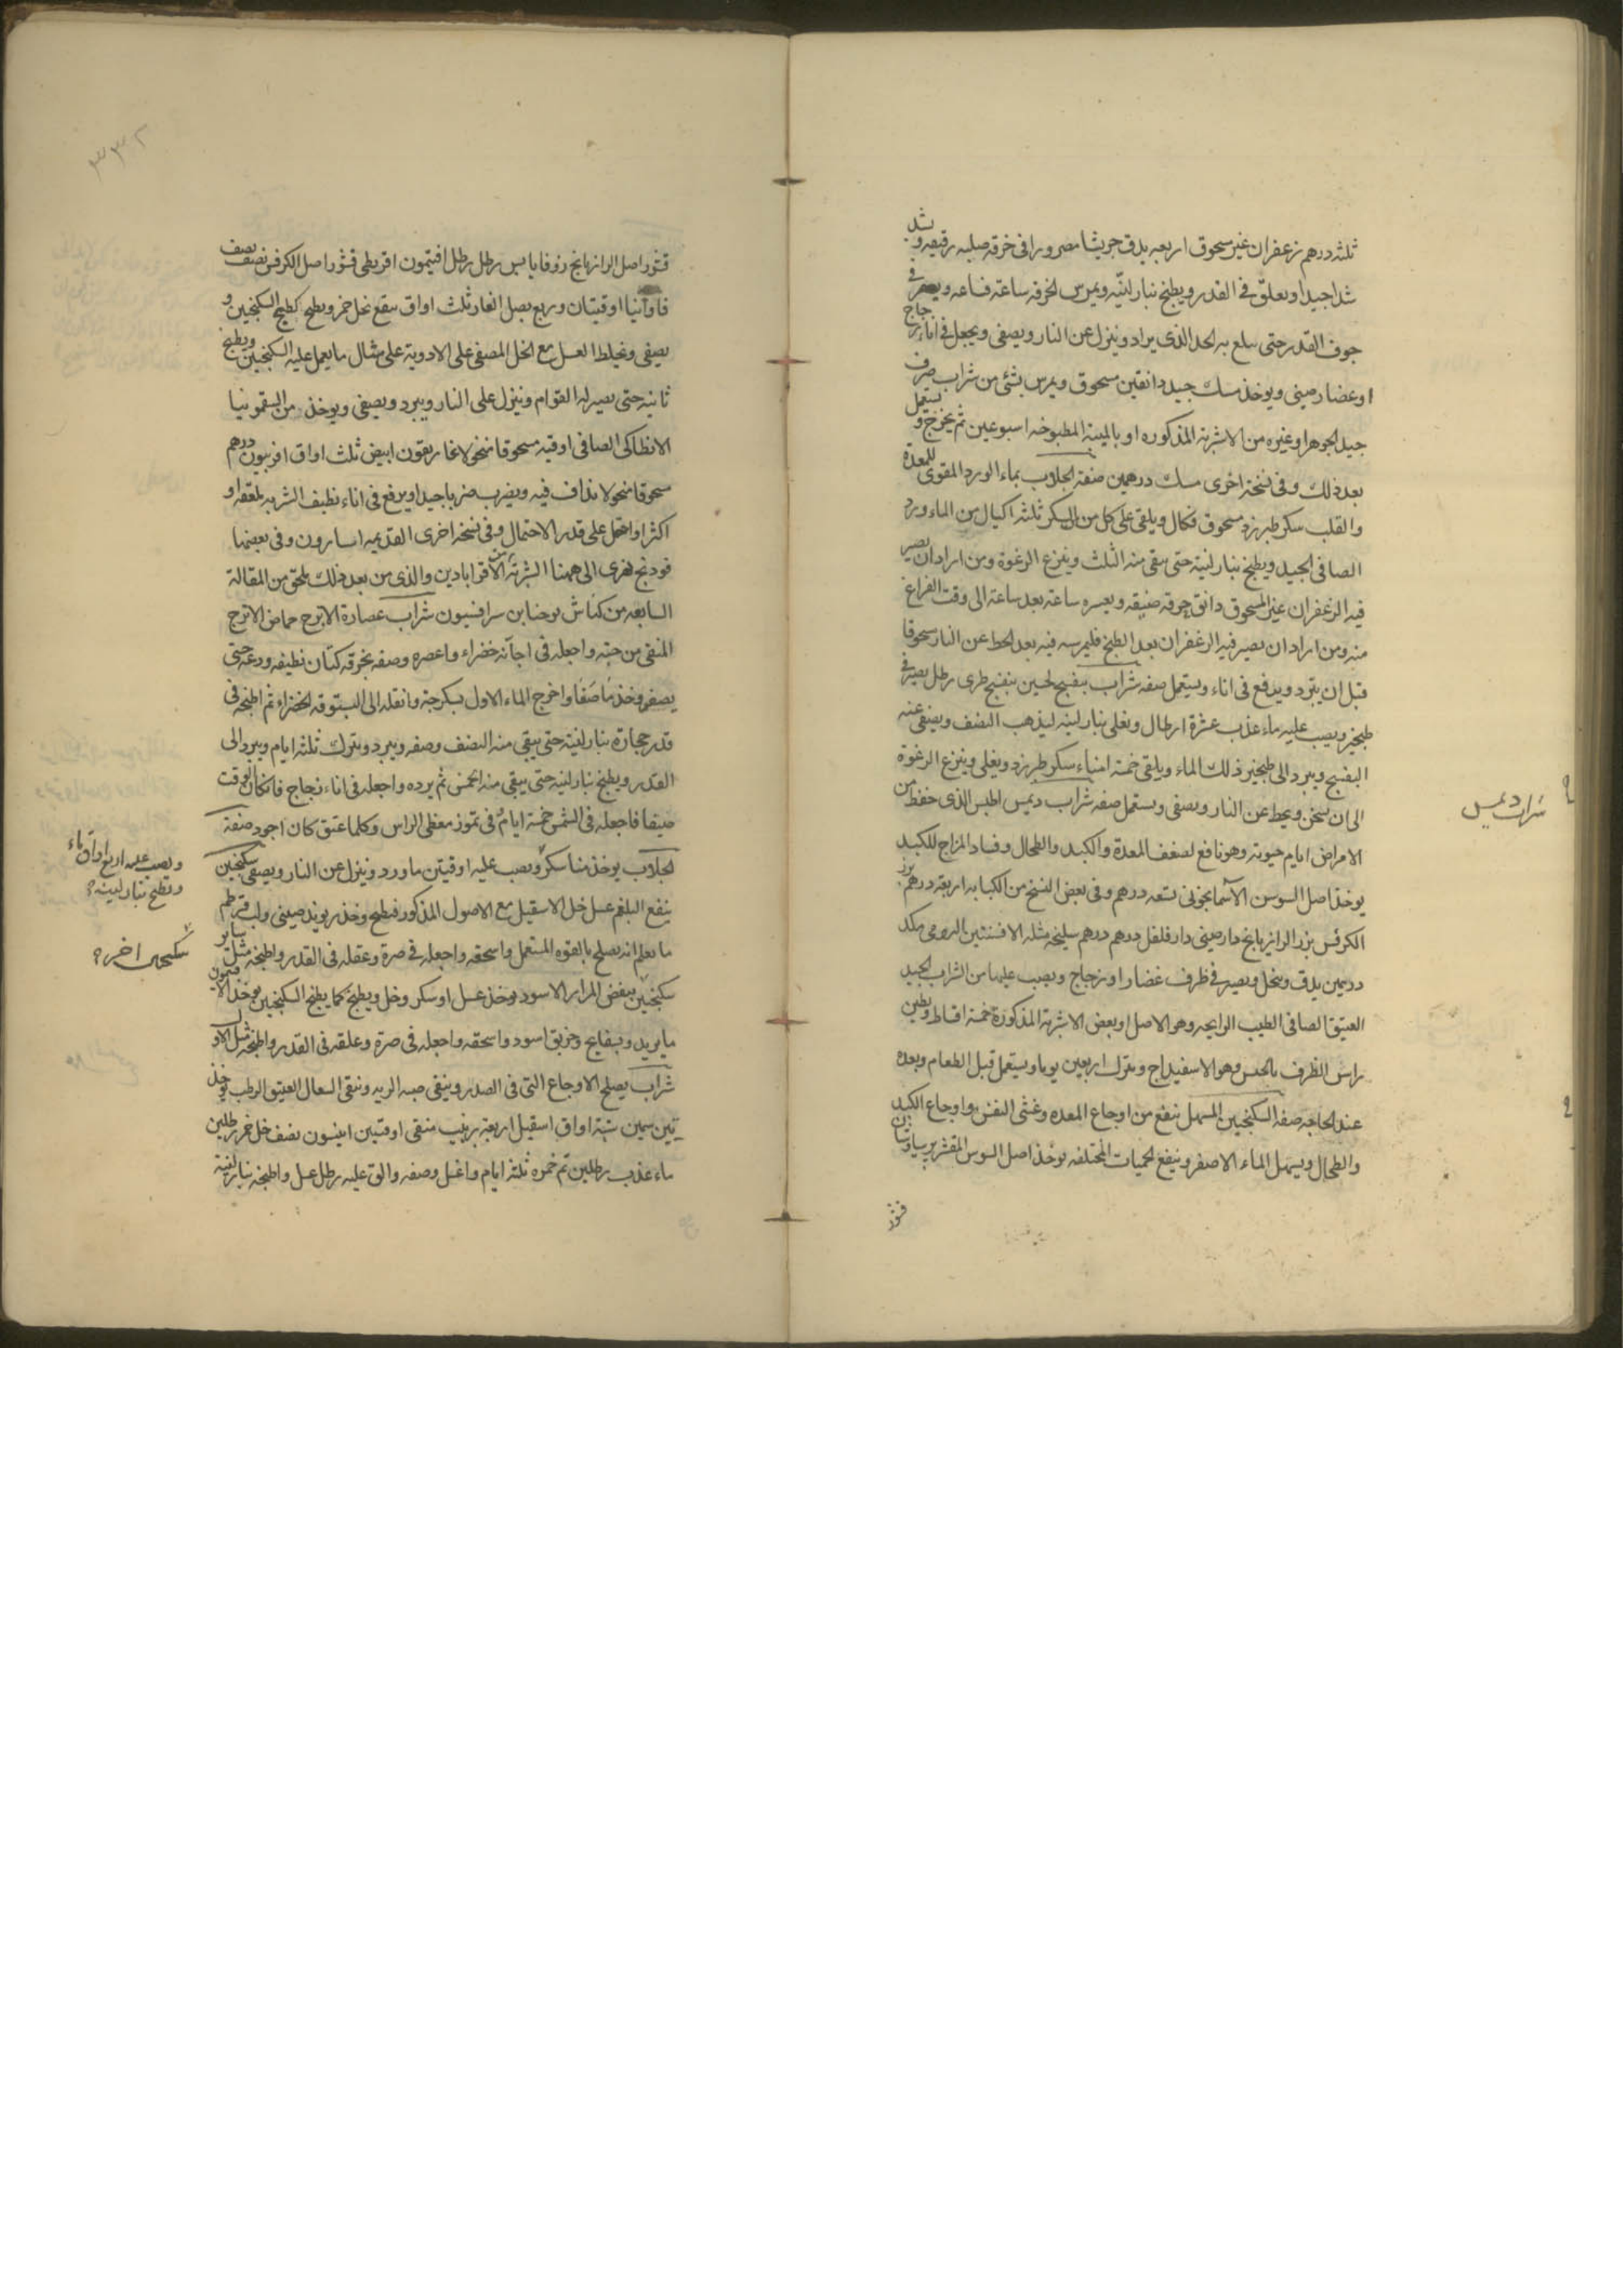 ثلثه درهم زعفران غير مسحوق اربعه يدق جريشا مصرورا فى خرقه صلبه رقيقه ويشد
شدا جيدا ويعلق فى القدر ويطبخ بنار لينه ويمرس الخرقه ساعة فساعه ويصير فى
جوف القدر حتى يبلغ به الحد الذى يراد وينزل عن النار ويصفى ويجعل فى اناء زجاج
او غضار صينى ويوخذ مسك جيد دانقين مسحوق ويمرس بشئ من شراب صرف
جيد الجوهر او غيره من الاشربة المذكوره او بالميبة المطبوخه اسبوعين ثم يخرج ويستعمل
بعد ذلك وفى نسخة اخرى مسك درهمين صفة الجلاب بماء الورد المقوى للمعدة
والقلب سكر طبرزد مسحوق فكال ويلقى على كل من السكر ثلثه اكيال من الماء ورد
الصافى الجيد ويطبخ بنار لينة حتى يبقى منه الثلث وينزع الرغوة ومن اراد ان يصير
فيه الزعفران غير المسحوق دانق خرقه ضيقه ويعسره ساعة بعد ساعة الى وقت الفراغ
منه ومن اراد ان يصير فيه الزعفران بعد الطبخ فليمرسه فيه بعد الحط عن النار مسحوقا
قبل ان يبرد ويرفع فى اناء ويستعمل صفه شراب بنفسج لحنين بنفسج طرى رطل يصير فى
طبخير ويصب عليه ماء عذب عشرة ارطال ويغلى بنار لينه ليذهب النصف ويصفى عنه
البنفسج ويبرد الى طبخير ذلك الماء ويلقى خمسة امناء سكر طبرزد ويغلى وينزع الرغوة
الى ان يسخن ويحط عن النار ويصفى ويستعمل صفه شراب ديمس اطبس الذى حفظ من
الامراض ايام حيوته وهو نافع لضعف المعدة والكبد والطحال وفساد المزاج للكبد
يوخذ اصل السوسن الآسمانجونى تسعه درهم وفى بعض النسخ من الكبابه اربعة درهم بزر
الكرفس بزر الرازيانج دارصينى دارفلفل درهم درهم سليخه مثله الافسنتين الرومى مكد
درهمين يدق وينخل ويصير فى ظرف غضار او زجاج ويصب عليها من الشراب الجيد
العتيق الصافى الطيب الرايحه وهو الاصل او بعض الاشربة المذكورة خمسة اقساط ويطين
راس الظرف بالجبس وهو الاسفيداج ويترك اربعين يوما ويستعمل قبل الطعام وبعده
عند الحاجه صفه السكنجبين المسهل ينفع من اوجاع المعده وغثى النفس واوجاع الكبد
والطحال ويسهل الماء الاصفر وينفع الحميات المختلفه يوخذ اصل السوس المقشر
قشور
شراب ديمس
٣٣٢
قشور اصل الرازيانج زوفا يابس رطل رطل افتيمون اقريطى قشور اصل الكرفس نصف نصف
فاوانيا اوقيتان وربع بصل الفار ثلث اواق ينقع بخل خمر ويطبخ كطبخ السكنجبين و
يصفى ويخلط العسل مع الخل المصفى على الادوية على مثال ما يعمل عليه السكنجبين ويطبخ
ثانية حتى يصير له القوام وينزل على النار ويبرد ويصفى ويوخذ من السقمونيا
الانطاكى الصافى اوقيه مسحوقا منخولا غاريقون ابيض ثلث اواق افربيون درهم
مسحوقا منخولا يداف فيه ويضرب ضربا جيدا ويرفع فى اناء نظيف الشربه ملعقه او
اكثر او اقل على قدر الاحتمال وفى نسخة اخرى القديمه اسارون وفى بعضها
فودنج نهرى الى ههنا الشربة من الاقراباذين والذى من بعد ذلك ملحق من المقالة
السابعه من كناش يوحنا بن سرافيون شراب عصارة الاترج حماض الاترج
المنقى من حبه واجعله فى اجانه خضراء واعصره وصفه بخرقه كتان نظيفه ودعه حتى
يصفو وخذ ما صفا واخرج الماء الاول بسكرجة وانقله الى البستوقه الخضراء ثم اطبخه فى
قدر حجارة بنار لينة حتى يبقى منه النصف وصفه وبرد ويترك ثلثه ايام ويرد الى
القدر ويطبخ بنار لينه حتى يبقى منه الخمس ثم برده واجعله فى اناء زجاج فان كان الوقت
صيفا فاجعله فى الشمس خمسة ايام فى تموز مغطى الراس وكلما عتق كان اجود صفة
الجلاب يوخذ منا سكر ويصب عليه اوقيتن ماورد وينزل عن النار ويصفى سكنجبين
ينفع البلغم عسل خل الاسقيل مع الاصول المذكور فيطبخ وخذ ريوند صينى ولب قرطم
ما يعلم انه يصلح بالقوه المستعمل واسحقه واجعله فى صرة وعقله فى القدر واطبخه مثل ساير
سكنجبين ينفض المرار الاسود يوخذ عسل او سكر وخل ويطبخ كما يطبخ السكنجبين يوخذ الافتيمون
ما يريد وبسفايج وخربق اسود واسحقه واجعله فى صرة وعلقه فى القدر واطبخه مثل الاول
شراب يصلح الاوجاع التى فى الصدر وينقى الريه وينقى السعال العتيق الرطب يوخذ
تين سمين ستة اواق اسقيل اربعة زبيب منقى اوقتين انيسون نصف خل خمر رطلين
ماء عذب رطلين ثم خمره ثلثة ايام واغسل وصفه والق عليه رطل عسل واطبخه بنار لينة
ويصب عليه اربع اواق ماء
ويطبخ بنار لينه
سكنجبين اخر